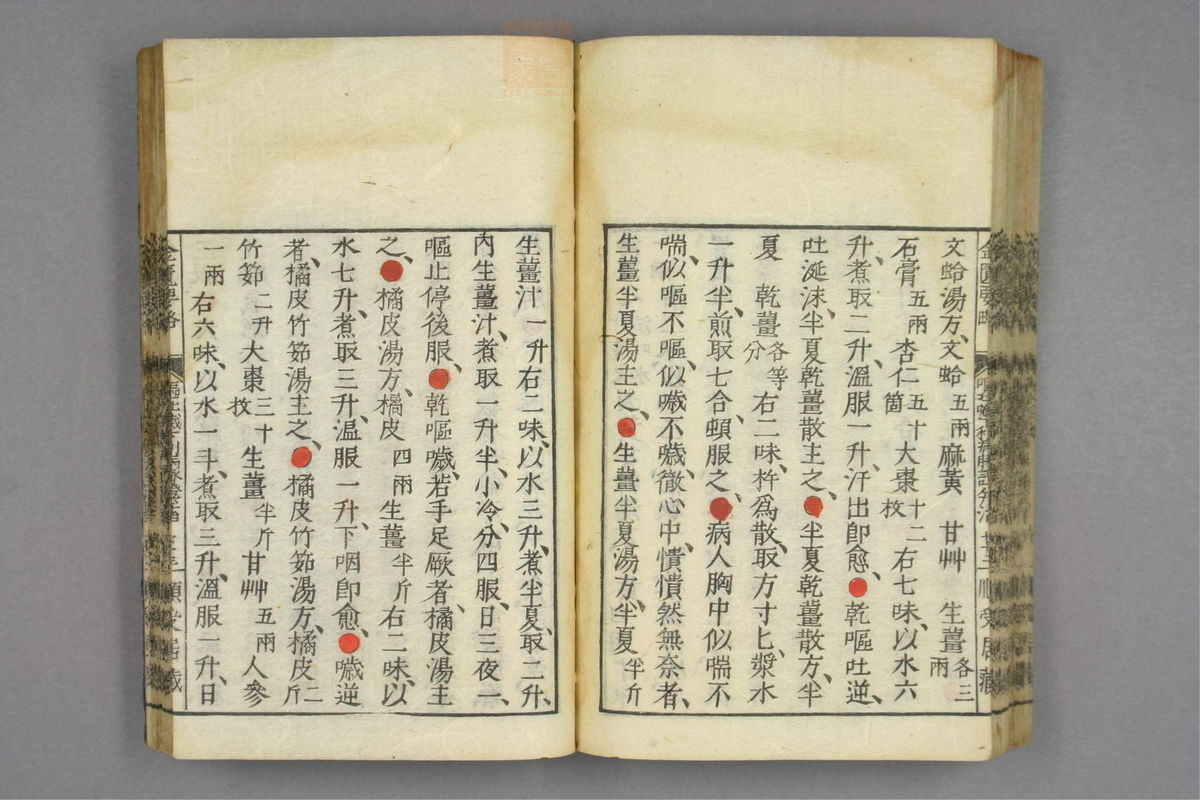 文蛤湯方、文蛤五兩麻黃 甘艸 生薑各三兩
石膏五兩杏仁五十箇大棗十二枚右七味、以水六
升、煮取二升、溫服一升、汗出即愈、乾嘔吐逆、
吐涎沫、半夏乾薑散主之、半夏乾薑散方、半
夏 乾薑各等分右二味、杵為散、取方寸匕、漿水
一升半、煎取七合、頓服之、病人胸中似喘不
喘、似嘔不嘔、似噦不噦、徹心中、憒憒然無奈者、
生薑半夏湯主之、生薑半夏湯方、半夏半斤
生薑汁一升右二味、以水三升、煮半夏、取二升、
內生薑汁、煮取一升半、小冷、分四服、日三夜一、
嘔止停後服、乾嘔噦、若手足厥者、橘皮湯主
之、橘皮湯方、橘皮四兩生薑半斤右二味、以
水七升、煮取三升、溫服一升、下咽即愈、噦逆
者、橘皮竹筎湯主之、橘皮竹筎湯方、橘皮二斤
竹筎二升大棗三十枚生薑半斤甘艸五兩人參
一兩右六味、以水一斗、煮取三升、溫服一升、日
金匱要略
順受居藏